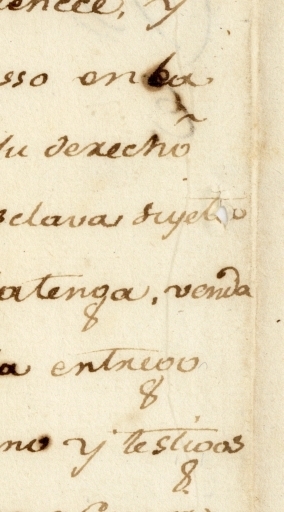 tenece, y
sso en la
su derecho
sclava sujeto
la tenga, venda
a entrego
no y testigos